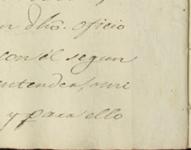 n dho. oficio
con el segun
entender, mi
y para ello